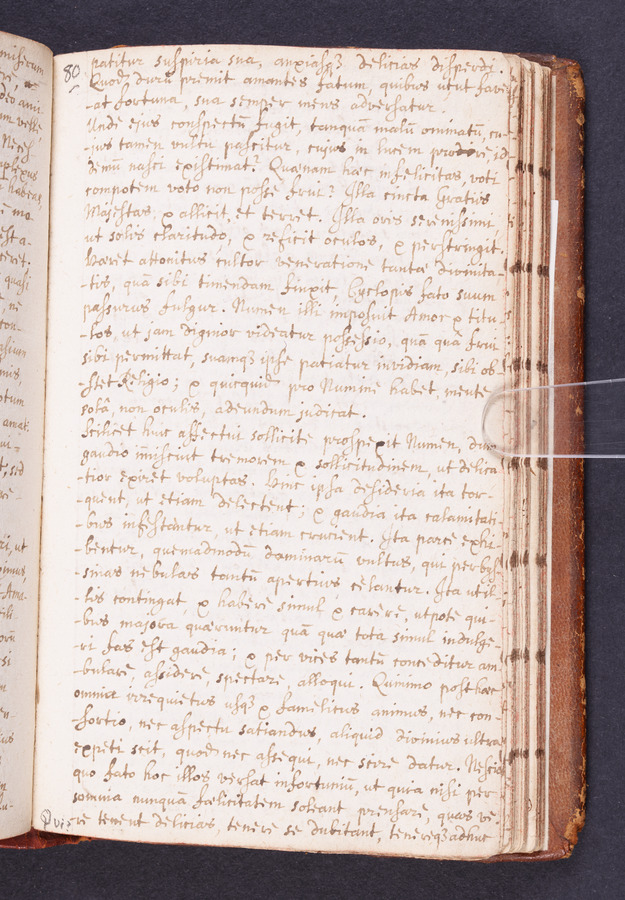 80
patitur suspiria sua, anxiasqz delicias disperdi.
Quodqz durū premit amantes fatum, quibus utut fave-
-at fortuna, sua semper mens adversatur.
Unde ejus conspectū fugit, tanquā malū ominatū, cu-
-jus tamen vultu pascitur, cujus in lucem prodire, id-
-demū nasci existimat? Quænam hæc infelicitas, voti
compotem voto non posse frui? Illa cincta Gratiis
Majestas, & allicit, et terret. Illa oris serenissimi,
ut solis claritudo, & reficit oculos, & perstringit.
Hæret attonitus cultor veneratione tantæ divinita-
-tis, quā sibi timendam finxit, Cyclopis fato suum
passurus fulgur. Numen illi imposuit Amor & titu-
-los, ut jam dignior videatur possessio, quā quā frui
sibi permittat, suamqz ipse patiatur invidiam, sibi ob-
-stet Religio; & quicquid pro Numine habet, mente
solâ, non oculis, adeundum judicat.
Scilicet huic affectui sollicite prospexit Numen, dum
gaudio miscuit tremorem & sollicitudinem, ut delica-
-tior exiret voluptas. Hinc ipsa desideria ita tor-
-quent, ut etiam delectent; & gaudia ita calamitati-
-bus infestantur, ut etiam crucient. Ita parce exhi-
-bentur, quemadmodū dominarū vultus, qui per bys-
-sinas nebulas tantū apertius celantur. Ita util-
-tis contingat, & habere simul & carere, utpote qui-
-bus majora quæruntur quā quæ tota simul indulge-
-ri fas est gaudia; & per vices tantū conceditur am-
-bulare, assidere, spectare, alloqui. Quinimo post hæc
omnia irrequietus usqz & famelicus animus, nec con-
-sortio, nec aspectu satiandus, aliquid divinius ultra
expeti scit, quod nec assequi, nec scire datur. Nescio
quo fato hoc illos versat infortuniū, ut quia nisi per
somnia nunquā fælicitatem soleant prensare, quas ve-
-re tenent delicias, tenere se dubitant, tenereqz adhuc